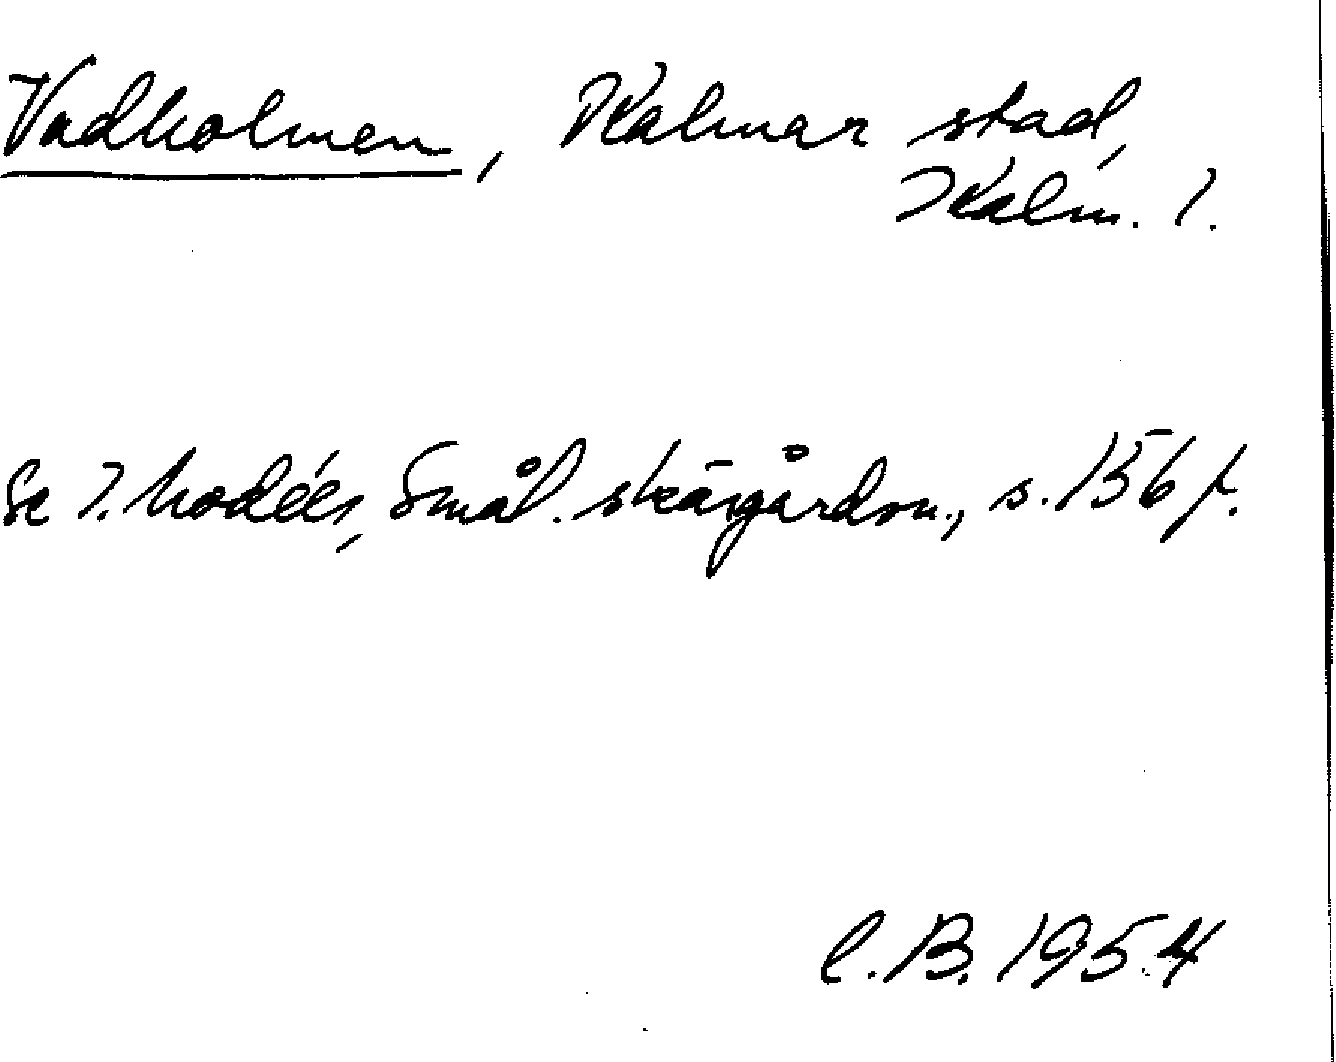 Vadholmen, Kalmar stad,
Kalm. l.
Se T. Modéer, Smål. skärgårdsn., s. 156 f.
C.B. 1954